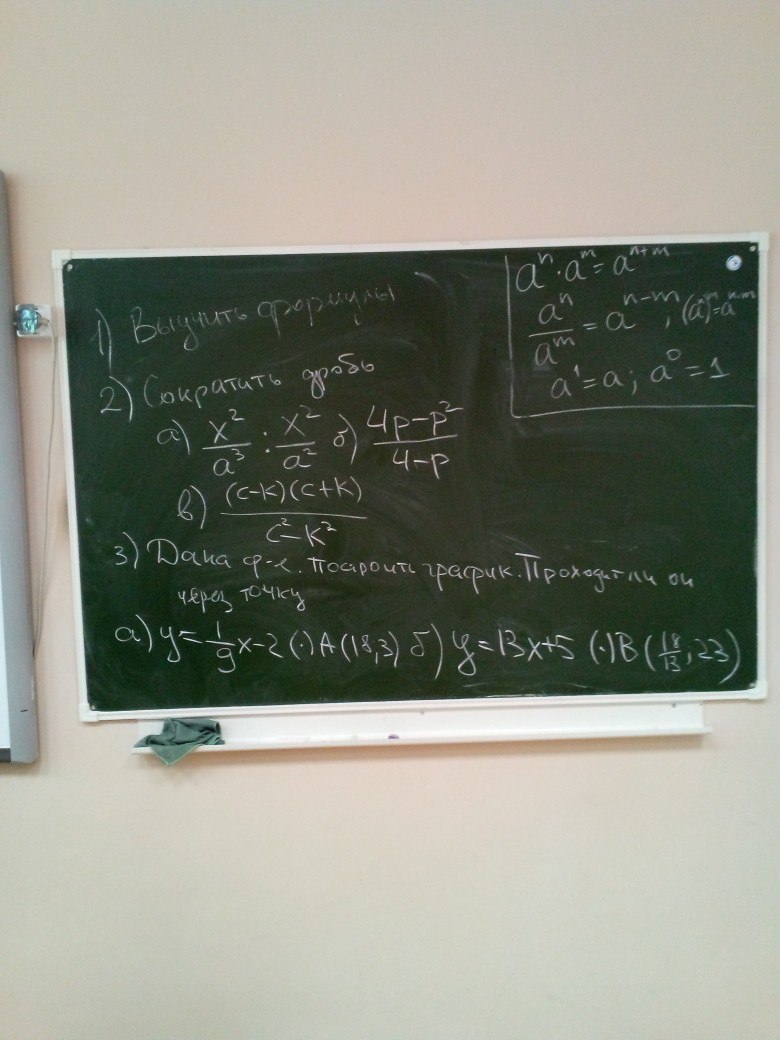 1) Выучить формулы
2) Сократить дробь
а) x²/a³ : x²/a² б) 4p-p²/4-p
в) (c-k)(c+k)/c²-k²
3) Дана ф-я. Построить график. Проходит ли он
через точку
а) y=1/9x-2 (·)A(18,3) б) y=13x+5 (·)B(18/13,23)
aⁿ·aᵐ=aⁿ⁺ᵐ
aⁿ/aᵐ=aⁿ⁻ᵐ; (aⁿ)ᵐ=aⁿᵐ
a¹=a; a⁰=1